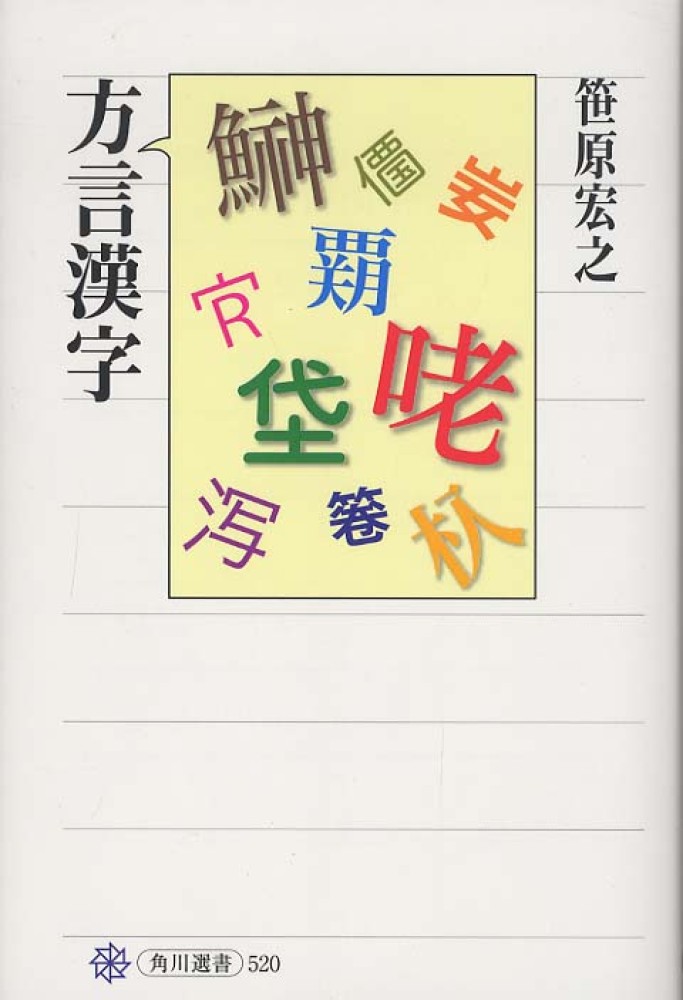 方言漢字
笹原宏之
鰰
垈
咾
泻
杁
角川選書 520